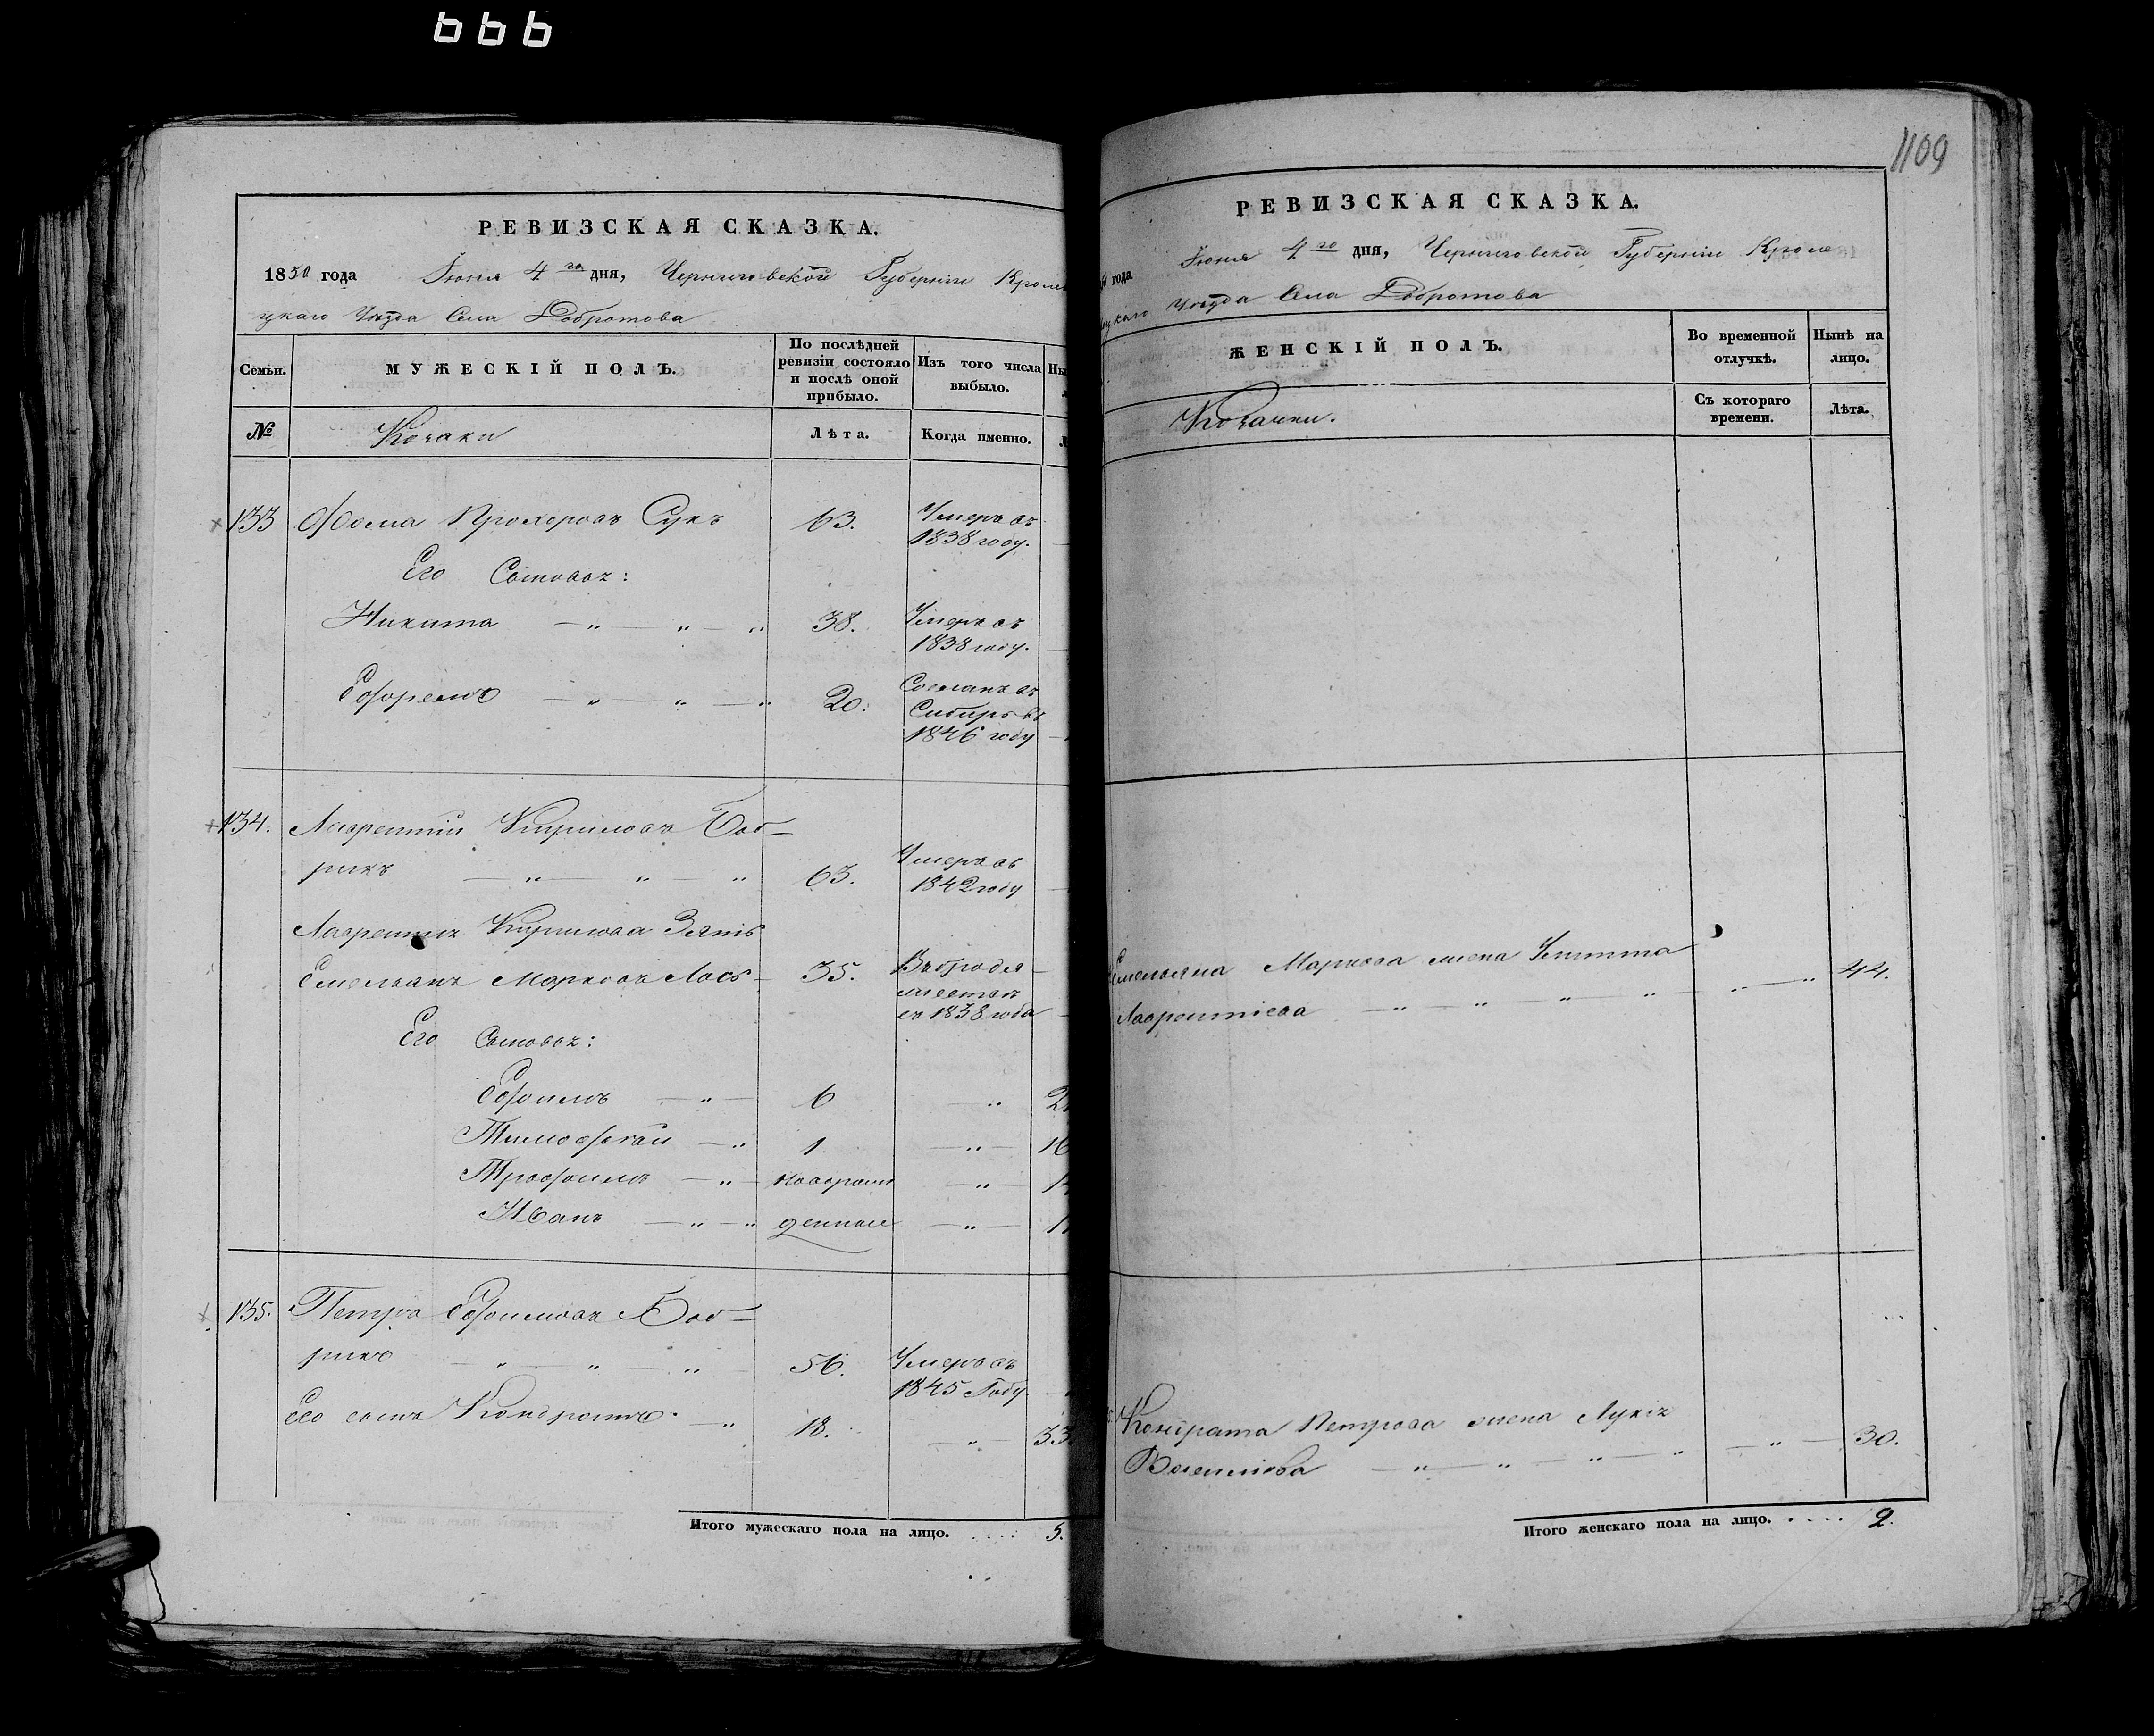 666
1109
РЕВИЗСКАЯ СКАЗКА.
1850 года Іюня 4го дня, Черниговской Губерніи Кроле
цкаго Уѣзда Села Добротова
Семьи. МУЖЕСКІЙ ПОЛЪ. По послѣдней ревизіи состояло и послѣ оной прибыло. Изъ того числа выбыло. Ны
№ Козаки Лѣта. Когда именно.
133 Ѳома Прохоровъ Сукъ 63. Умеръ въ
1838 году.
Его Сыновья:
Никита — „ — „ — „ 38. Умеръ въ
1838 году.
Ефремъ — „ — „ — „ 20. Сосланъ въ
Сибирь въ
1846 году
134. Лаврентій Кириловъ Боб—
рикъ — „ — „ — „ 63. Умеръ въ
1842 году
Лаврентія Кирилова Зять
Емельянъ Марковъ 35.
съ 1838 года
Его Сыновья:
Ефимъ — „ — 6 „
Тимофѣй — „ 1. — „ — 16
Трофимъ — „ — новорож — „ —
Иванъ — „ — „ денные — „ —
135. Петръ Ефимовъ Боб—
рикъ — „ — „ — „ 56. Умеръ въ
1845 Году.
Его сынъ Кондратъ — „ 18. — „ — 33
Итого мужескаго пола на лицо. . . . . 5.
РЕВИЗСКАЯ СКАЗКА.
года Іюня 4го дня, Черниговской Губерніи Кроле
вецкаго Уѣзда Села Добротова
ЖЕНСКІЙ ПОЛЪ. Во временной отлучкѣ. Нынѣ на лицо.
Козачки. Съ котораго времени. Лѣта.
Емельяна Маркова жена
Лаврентіева — „ — „ — „ — „ — „ — „ 44.
Кондрата Петрова жена
— „ — „ — „ — „ — „ — 30.
Итого женскаго пола на лицо. . . . . 2.